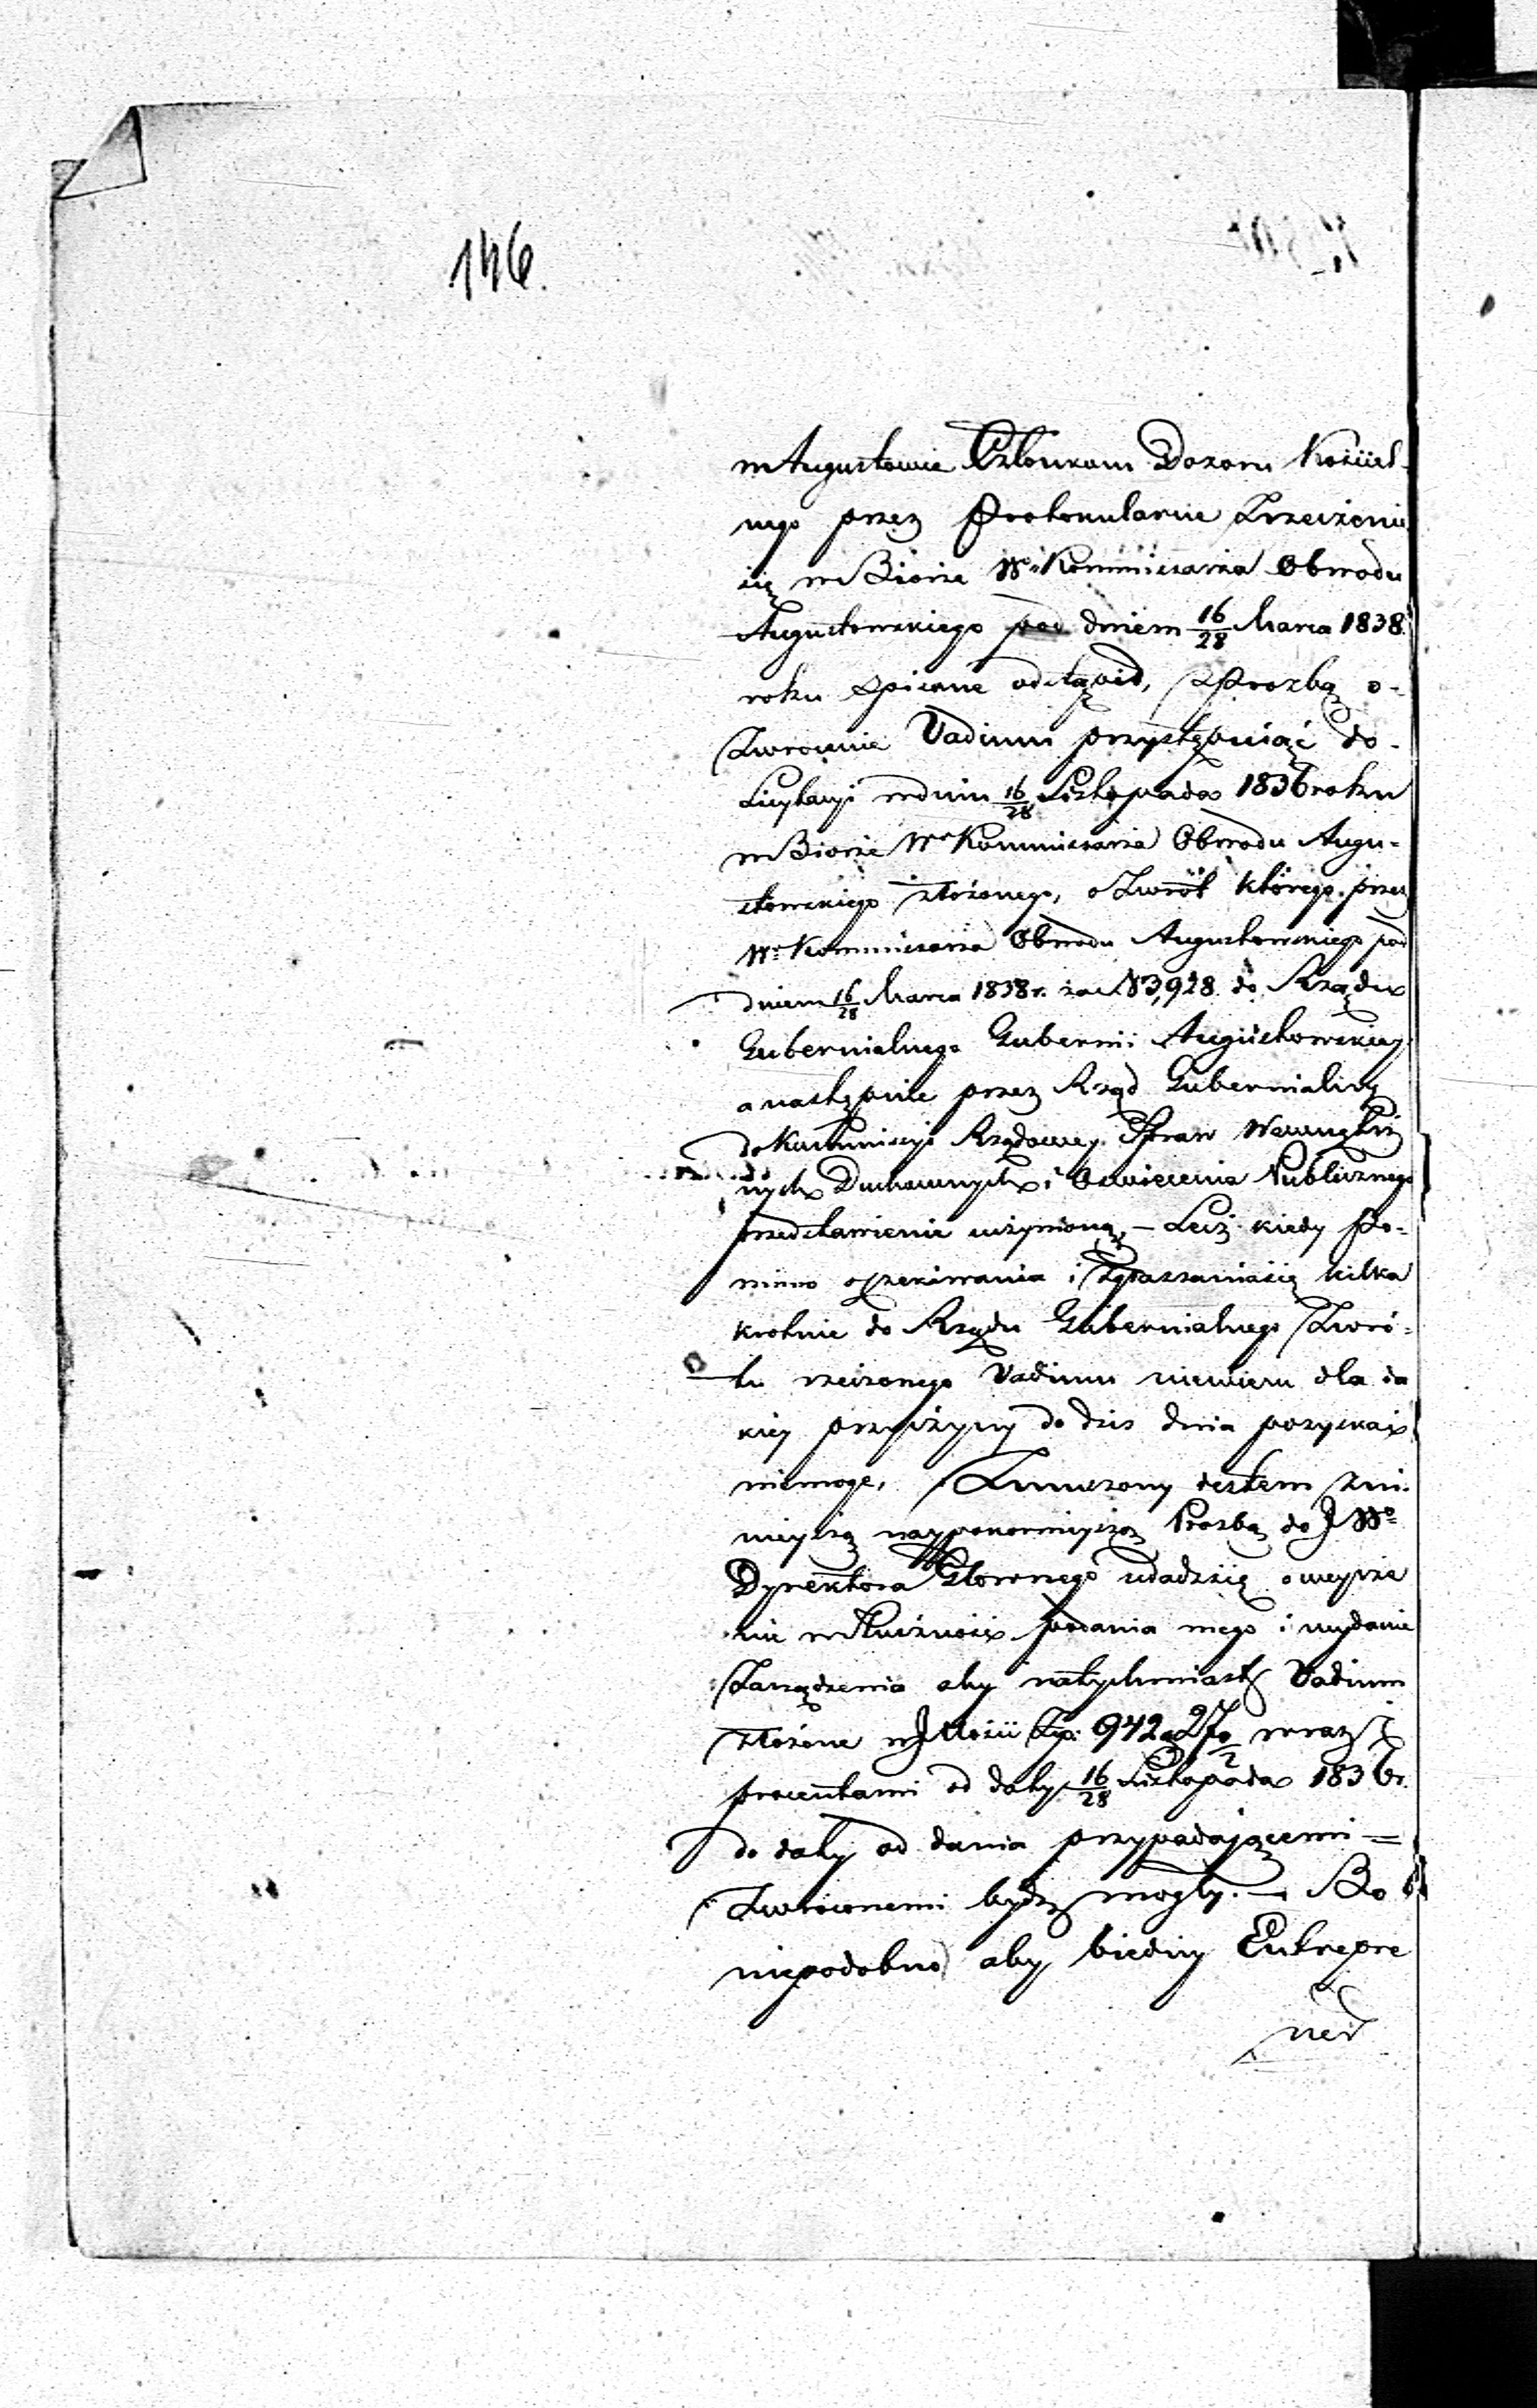 146.
w Augustowie Członkom Dozoru Kościel-
nego przez Protokularne Zrzeczenie
się w Biorze Wo Kommissarza Obwodu
Augustowskiego pod dniem 16/28 Marca 1838.
roku spisane odstąpił, z Prozbą o-
Zwrócenie Vadium przystępuiąć do-
Licytacyi w dniu 16/28 Listopada 1836 roku
w Biorze Wo Kommissarza Obwodu Augu-
stowskiego złożonego, o Zwrót którego przez
Wo Kommissarza Obwodu Augustowskiego pod
dniem 16/28 Marca 1838 r. za N 3,928 do Rządu
Gubernialnego Gubernii Augustowskiey
a następnie przez Rząd Gubernialny
do Kommissyi Rządowey Spraw Wewnętrz
nych Duchownych i Oswiecenia Publicznego
przedstawienie uczyniono, – Lecz kiedy Po-
mimo oczekiwania i Zgłaszania się kilka
krotnie do Rządu Gubernialnego Zwró-
tu rzeczonego Vadium niewiem dla ia
kiey przyczyny do dzis dnia pozyskać
niemogę, Zmuszony iestem z ni
nieyszą naypokornieyszą Prozbą do J Wo
Dyrektora Głownego udadź się o weyrze
nie w Słuszność podania mego i wydanie
Zarządzenia aby natychmiast Vadium
złożone w Jlości Złp: 942 g 27 1/2 wraz z
procentami od daty 16/28 Listopada 1836 r.
do daty od dania przypadaiącemi =
Zwróconemi bydź mogły. – Bo
niepodobno aby biedny Entrepre
neur